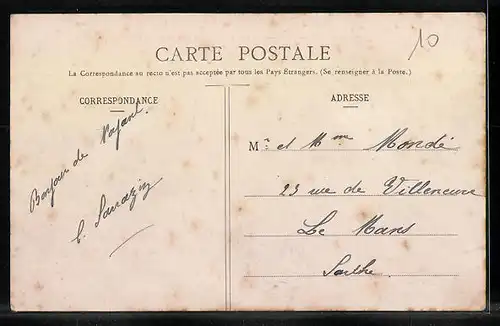 10
CARTE POSTALE
La Correspondance au recto n'est pas acceptée par tous les Pays Étrangers. (Se renseigner à la Poste.)
CORRESPONDANCE
Bonjour de
ADRESSE
Mr et Mme Mondé
23 rue de Villeneuve
Le Mans
Sarthe